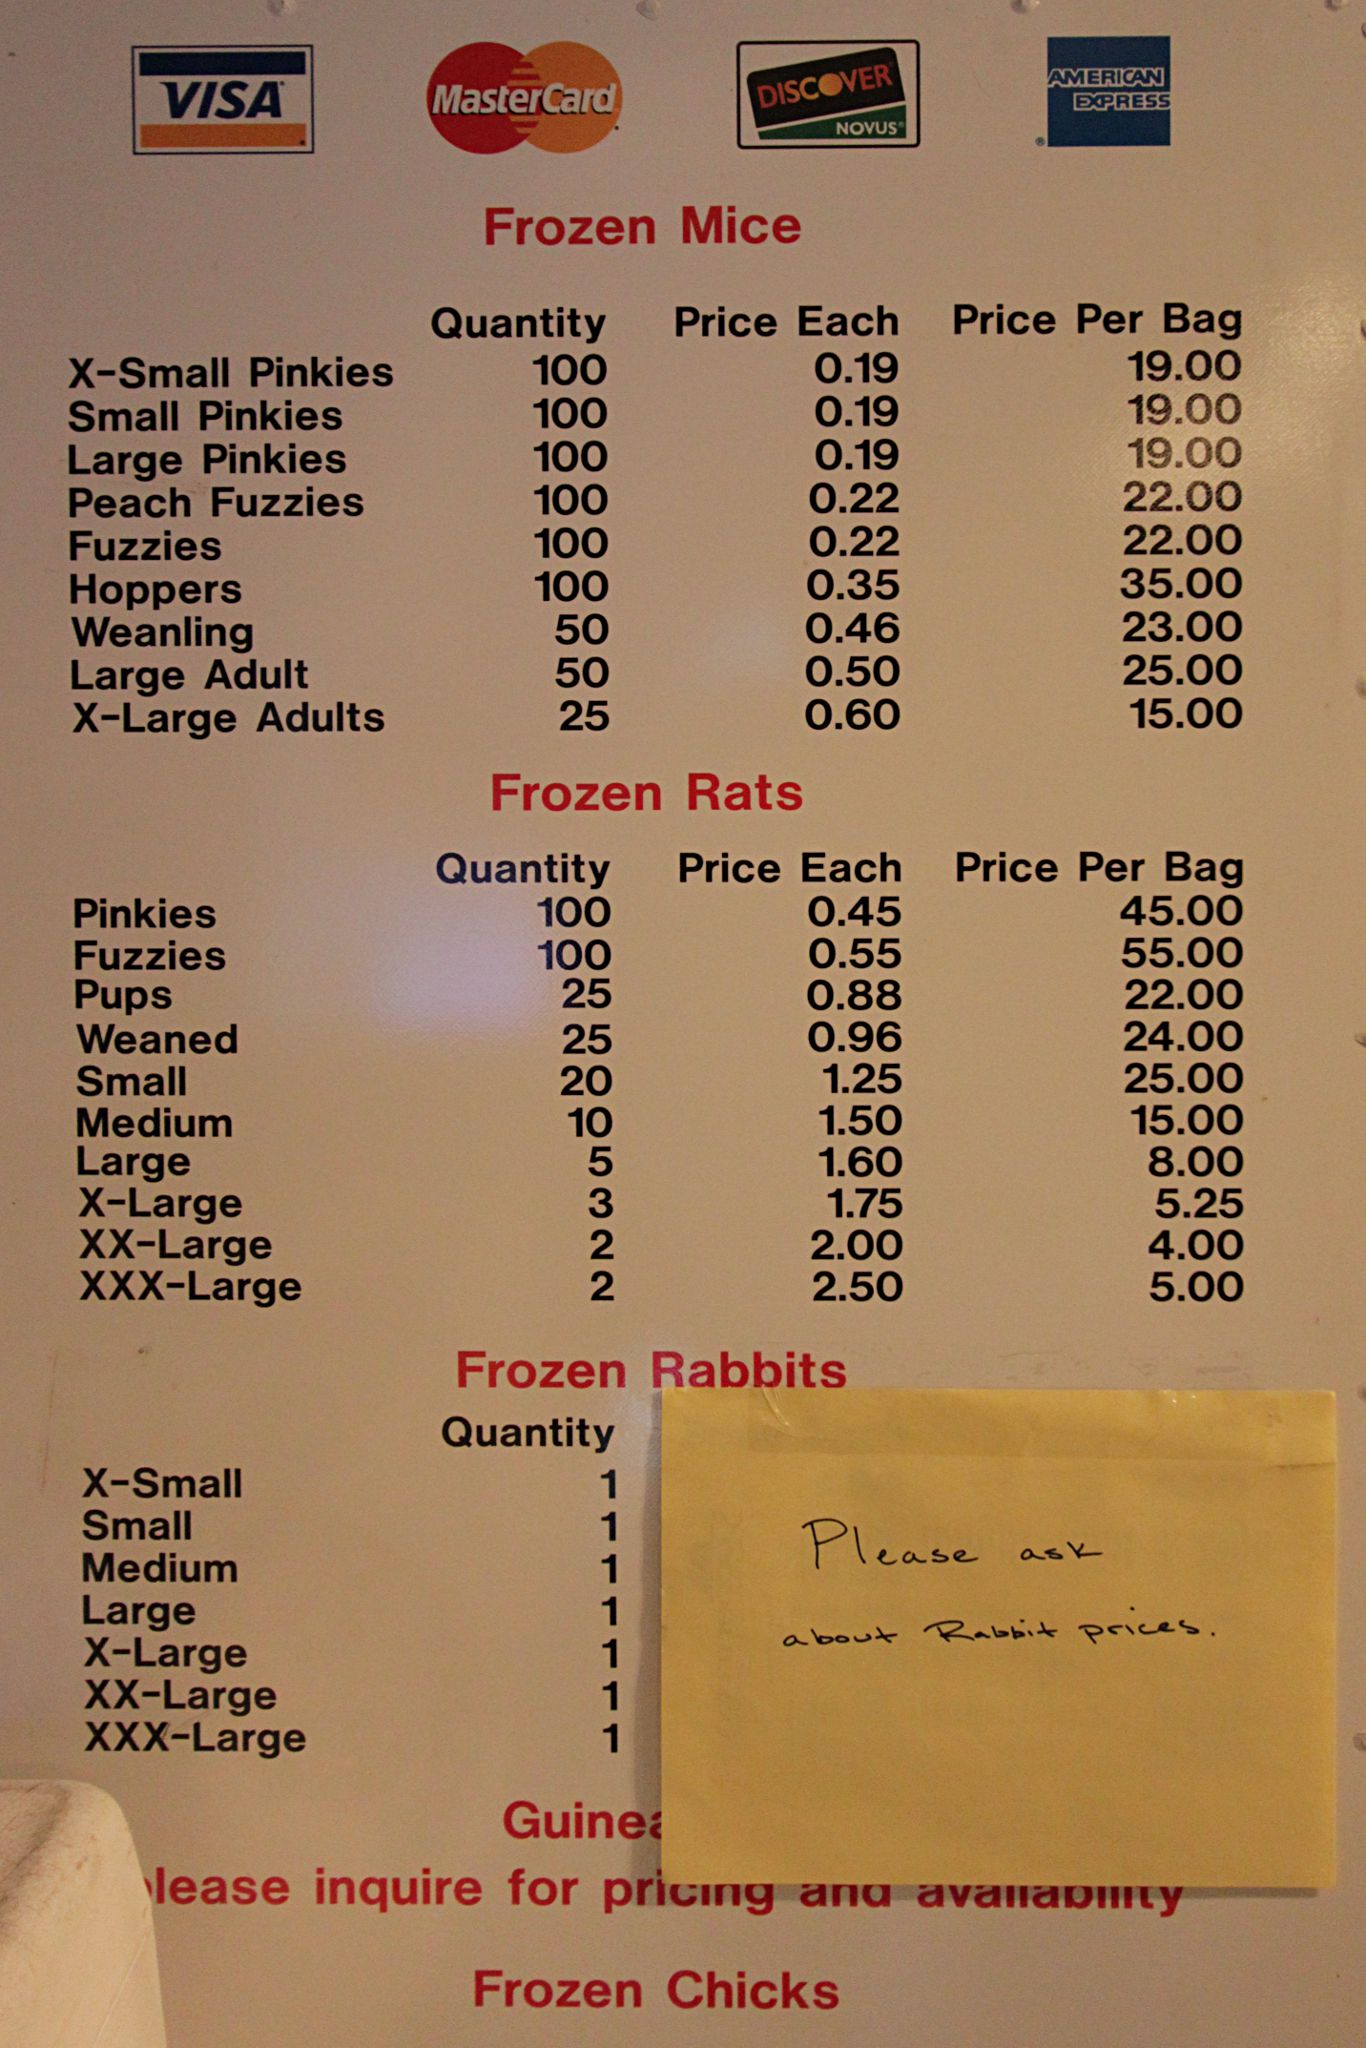 VISA MasterCard DISCOVER NOVUS AMERICAN EXPRESS
Frozen Mice
Quantity Price Each Price Per Bag
X-Small Pinkies 100 0.19 19.00
Small Pinkies 100 0.19 19.00
Large Pinkies 100 0.19 19.00
Peach Fuzzies 100 0.22 22.00
Fuzzies 100 0.22 22.00
Hoppers 100 0.35 35.00
Weanling 50 0.46 23.00
Large Adult 50 0.50 25.00
X-Large Adults 25 0.60 15.00
Frozen Rats
Quantity Price Each Price Per Bag
Pinkies 100 0.45 45.00
Fuzzies 100 0.55 55.00
Pups 25 0.88 22.00
Weaned 25 0.96 24.00
Small 20 1.25 25.00
Medium 10 1.50 15.00
Large 5 1.60 8.00
X-Large 3 1.75 5.25
XX-Large 2 2.00 4.00
XXX-Large 2 2.50 5.00
Frozen Rabbits
Quantity
X-Small 1
Small 1
Medium 1
Large 1
X-Large 1
XX-Large 1
XXX-Large 1
Please ask
about Rabbit prices.
Guinea
lease inquire for pricing and availability
Frozen Chicks